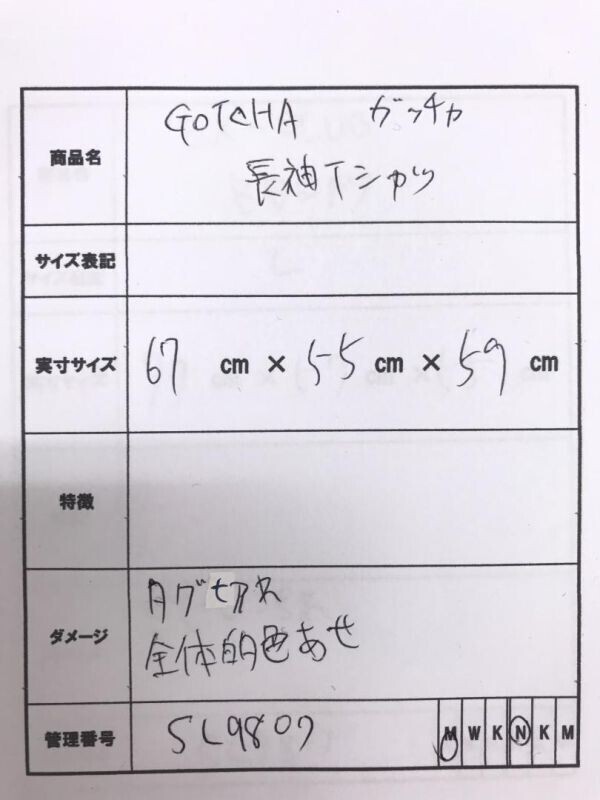 商品名
GOTCHA ガッチャ
長袖Tシャツ
サイズ表記
実寸サイズ
67 cm × 55 cm × 59 cm
特徴
ダメージ
タグ切れ
全体的色あせ
管理番号
SL9807
M W K N K M